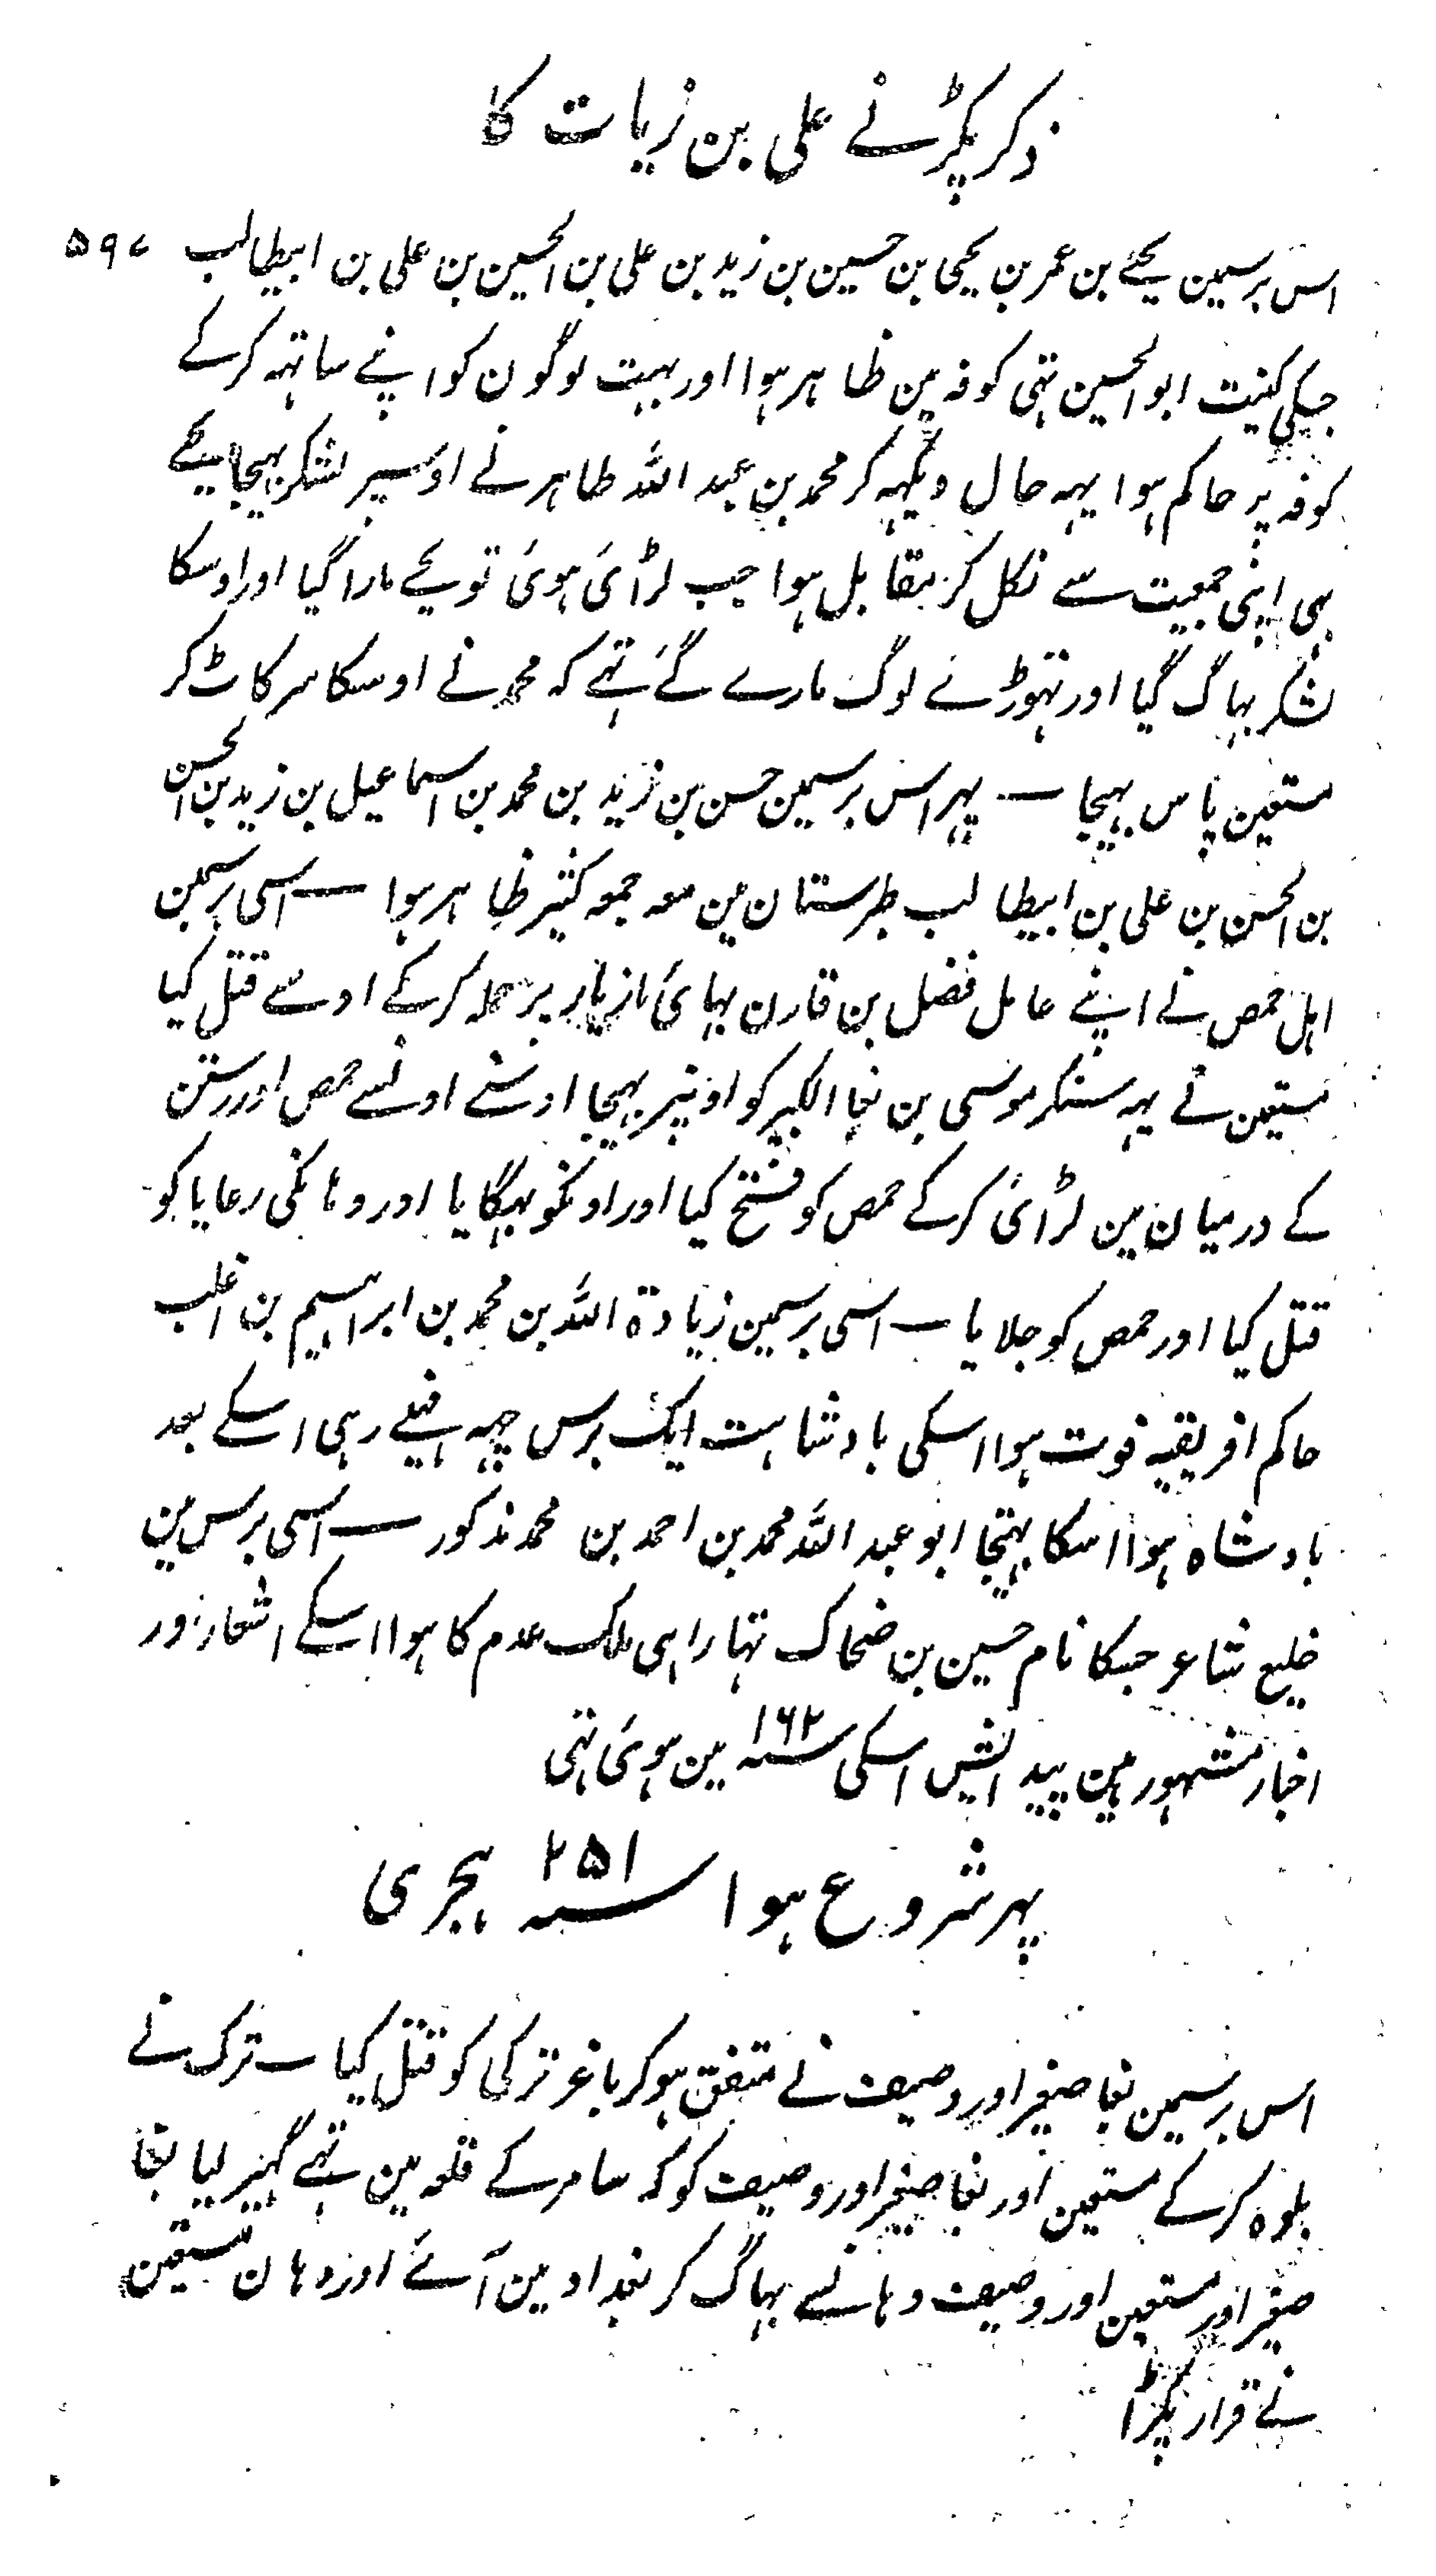 ذکر پکڑنے علی بن زیات کا
۵۹۷
اس برسمین یحیٰے بن عمر بن یحیی بن حسین بن زید بن علی بن الحسین بن علی بن ابیطالب
جسکی کنیت ابو الحسین تہی کوفہ مین ظاہر ہوا اور بہت لوگون کو اپنے ساتہہ کرکے
کوفہ پر حاکم ہوا یہہ حال دیکہہ کر محمد بن عبد اللہ طاہر نے اوسپر لشکر بہیجا یحیٰے
بہی اپنی جمعیت سے نکل کر مقابل ہوا جب لڑائی ہوئی تو یحیٰے مارا گیا اور اوسکا
لشکر بہاگ گیا اور تہوڑنے لوگ مارے گئے تہے کہ محمد نے اوسکا سر کاٹ کر
مستعین پاس بہیجا — پہر اس برسمین حسن بن زید بن محمد بن اسماعیل بن زید بن الحسن
بن الحسن بن علی بن ابیطالب طبرستان مین معہ جمعہ کثیر ظاہر ہوا — اسی برسمین
اہل حمص نے اپنے عامل فضل بن قارن بہائی مازیار پر حملہ کرکے اوسے قتل کیا
مستعین نے یہہ سنکر موسی بن بغا الکبیر کو اونپر بہیجا اوسنے اونسے حمص اور رستن
کے درمیان مین لڑائی کرکے حمص کو فتح کیا اور اونکو بہگایا اور وہانکی رعایا کو
قتل کیا اور حمص کو جلایا — اسی برسمین زیادۃ اللہ بن محمد بن ابراہیم بن اغلب
حاکم افریقیہ فوت ہوا اسکی بادشاہت ایک برس چہہ مہینے رہی اسکے بعد
بادشاہ ہوا اسکا بہتیجا ابو عبد اللہ محمد بن احمد بن محمد مذکور — اسی برس مین
خلیع شاعر جسکا نام حسین بن ضحاک تہا راہی ملک عدم کا ہوا اسکے اشعار اور
اخبار مشہور ہین پیدائیش اسکی سنہ ۱۶۲ مین ہوئی تہی
پہر شروع ہوا سنہ ۲۵۱ ہجری
اس برسمین بغا صغیر اور وصیف نے متفق ہو کر باغر ترکی کو قتل کیا — ترک نے
بلوہ کرکے مستعین اور بغا صغیر اور وصیف کو کہ سامر کے قلعہ مین تہے گہیر لیا بغا
صغیر اور مستعین اور وصیف وہانسے بہاگ کر بغداد مین آئے اور وہان مستعین
نے قرار پکڑا